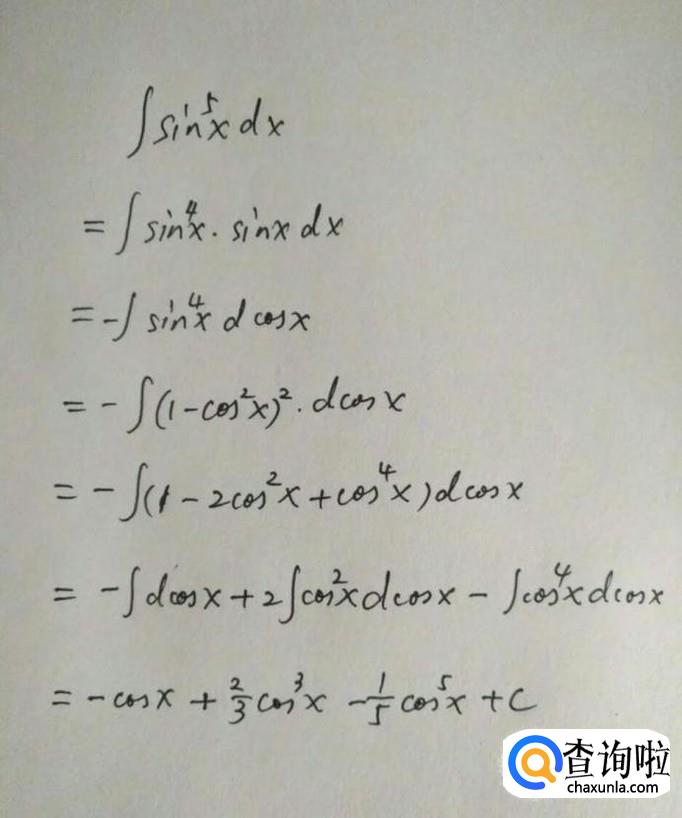 ∫sin⁵x dx
= ∫sin⁴x · sinx dx
= -∫ sin⁴x d cosx
= - ∫(1-cos²x)² · dcosx
= - ∫(1 - 2cos²x + cos⁴x) dcosx
= - ∫dcosx + 2∫cos²x dcosx - ∫cos⁴x dcosx
= - cosx + 2/3 cos³x - 1/5 cos⁵x + C
查询啦
chaxunla.com